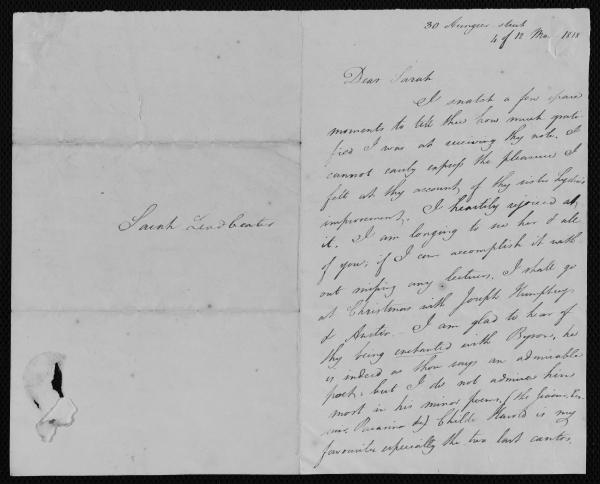 Sarah Leadbeater
30 Aungier street
4 of 12 Mo. 1818
Dear Sarah
I snatch a few spare
moments to tell thee how much grati-
fied I was at receiving thy note. I
cannot easily express the pleasure I
felt at thy account of thy sister Lydia's
improvement. I heartily rejoiced at
it. I am longing to see her & all
of you, if I can accomplish it with
out missing any lectures, I shall go
at Christmas with Joseph Humphrys
& Austin. I am glad to hear of
thy being enchanted with Byron, he
is indeed as thou says an admirable
poet, but I do not admire him
most in his minor poems, (the Giaour,
Parisina &c) Childe Harold is my
favourite especially the two last cantos.